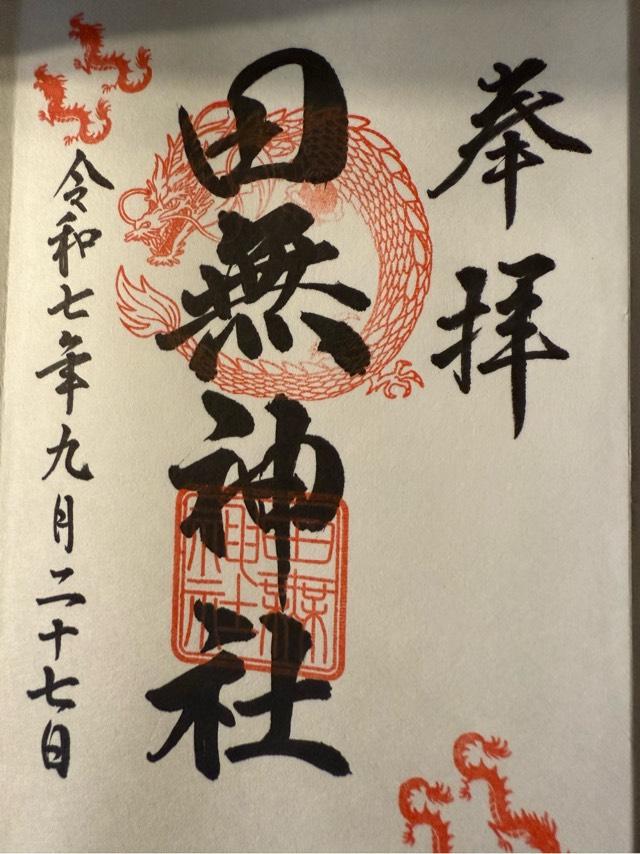 奉拝
田無神社
田無神社
令和七年九月二十七日